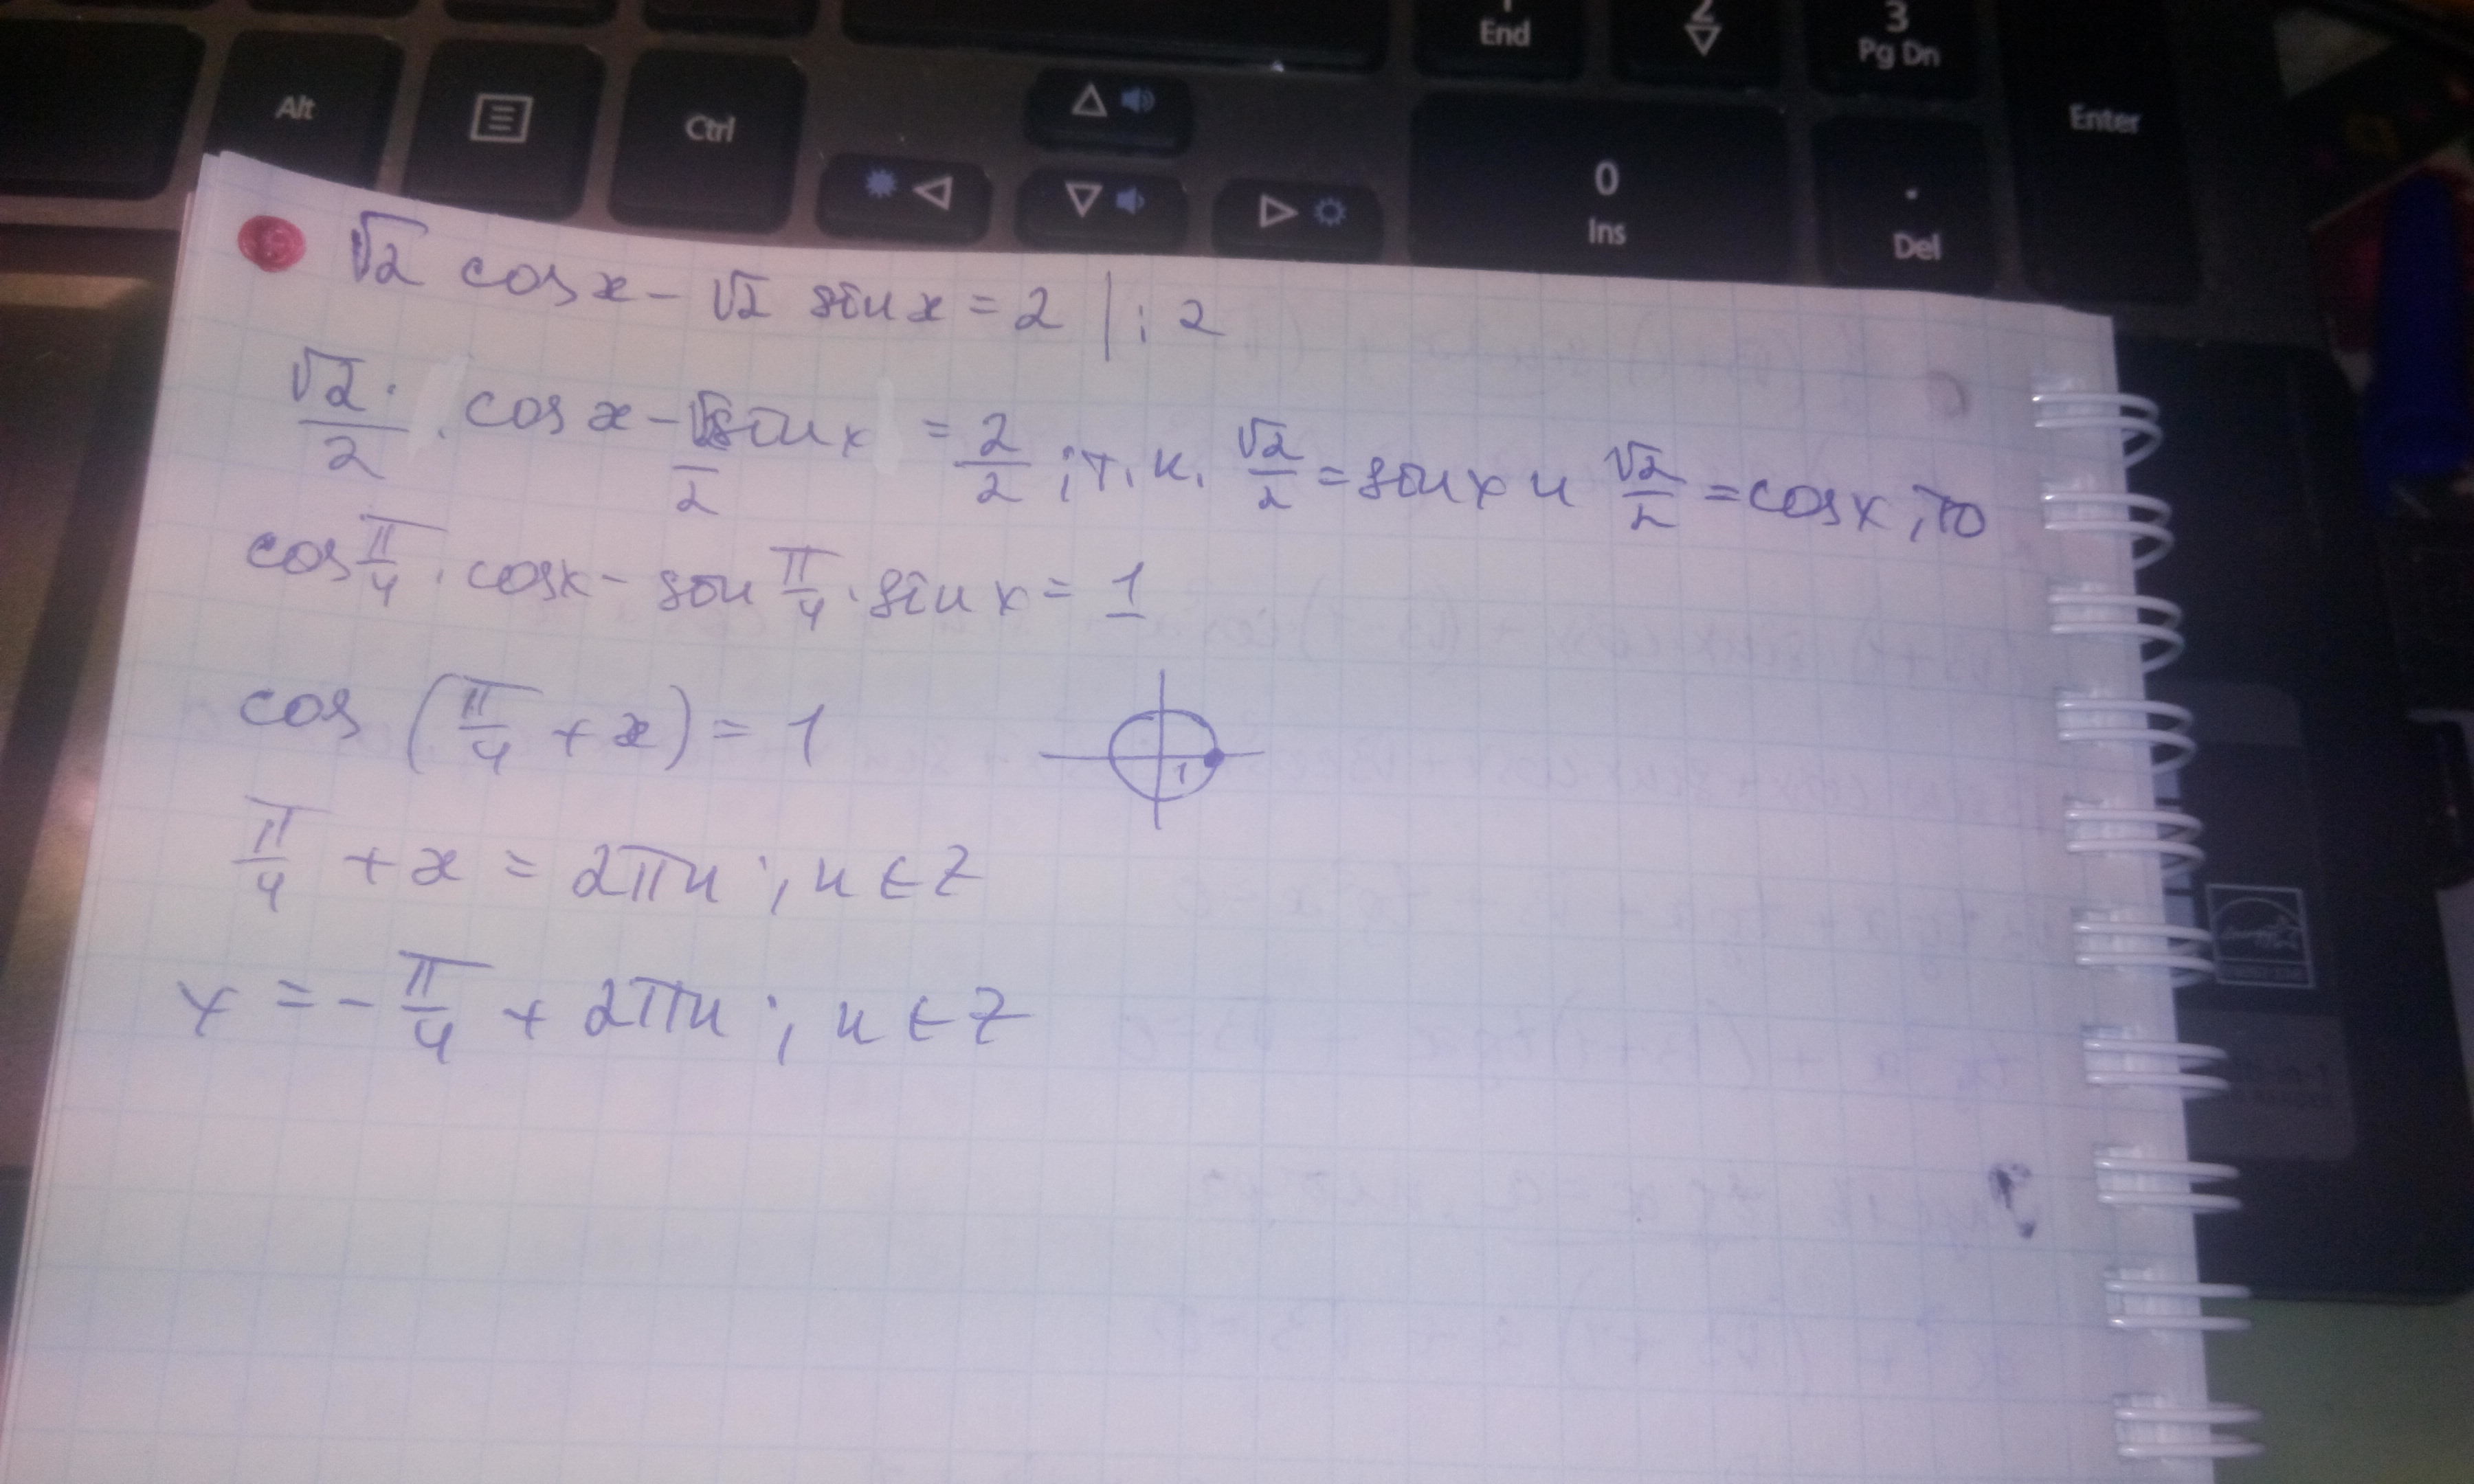 End
2
3
Pg Dn
Alt
Ctrl
Enter
0
Ins
.
Del
√2 cos x - √2 sin x = 2 | : 2
√2/2 · cos x - √2/2 sin x = 2/2 ; т.к. √2/2 = sin x и √2/2 = cos x, то
cos π/4 · cos x - sin π/4 · sin x = 1
cos (π/4 + x) = 1
1
π/4 + x = 2πn ; n ∈ Z
x = - π/4 + 2πn ; n ∈ Z